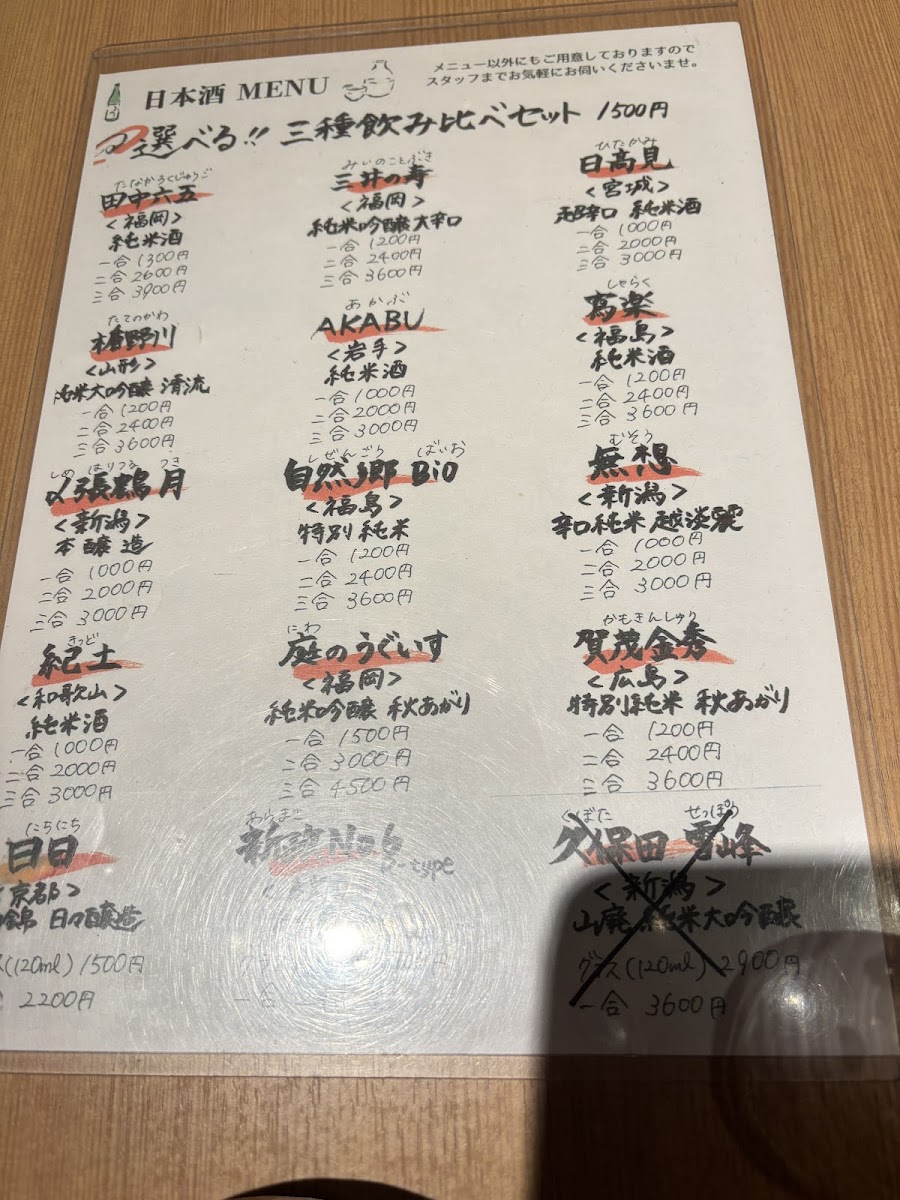 日本酒 MENU
メニュー以外にもご用意しておりますので
スタッフまでお気軽にお伺いくださいませ。
選べる!! 三種飲み比べセット 1500円
たなかろくじゅうご
田中六五
<福岡>
純米酒
一合 1300円
二合 2600円
三合 3900円
みいのことぶき
三井の寿
<福岡>
純米吟醸 大辛口
一合 1200円
二合 2400円
三合 3600円
ひたかみ
日高見
<宮城>
超辛口 純米酒
一合 1000円
二合 2000円
三合 3000円
たてのかわ
楯野川
<山形>
純米大吟醸 清流
一合 1200円
二合 2400円
三合 3600円
あかぶ
AKABU
<岩手>
純米酒
一合 1000円
二合 2000円
三合 3000円
しゃらく
寫楽
<福島>
純米酒
一合 1200円
二合 2400円
三合 3600円
しめ はりつる つき
〆張鶴 月
<新潟>
本醸造
一合 1000円
二合 2000円
三合 3000円
しぜんごう ばいお
自然郷 BiO
<福島>
特別純米
一合 1200円
二合 2400円
三合 3600円
むそう
無想
<新潟>
辛口純米 越淡麗
一合 1000円
二合 2000円
三合 3000円
きっど
紀土
<和歌山>
純米酒
一合 1000円
二合 2000円
三合 3000円
にわ
庭のうぐいす
<福岡>
純米吟醸 秋あがり
一合 1500円
二合 3000円
三合 4500円
かもきんしゅう
賀茂金秀
<広島>
特別純米 秋あがり
一合 1200円
二合 2400円
三合 3600円
にちにち
日日
<京都>
錦 日々醸造
ス(120ml) 1500円
2200円
あらまさ
新政 No6
-type
くぼた せっぽう
久保田 雪峰
<新潟>
山廃 純米大吟醸
グラス(120ml) 2900円
一合 3600円